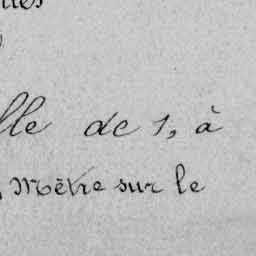 lle de 1, à
Mètre sur le